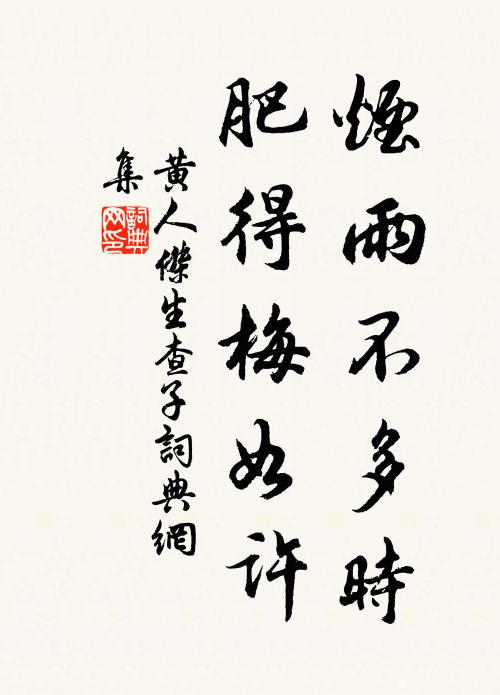 煙雨不多時
肥得梅如許
黄人傑生查子詞典網
集
詞典網印